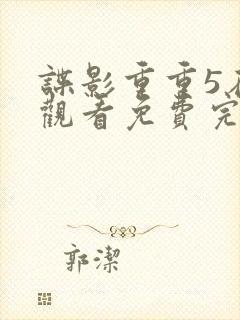 諜影重重5在
觀看免費完
郭潔